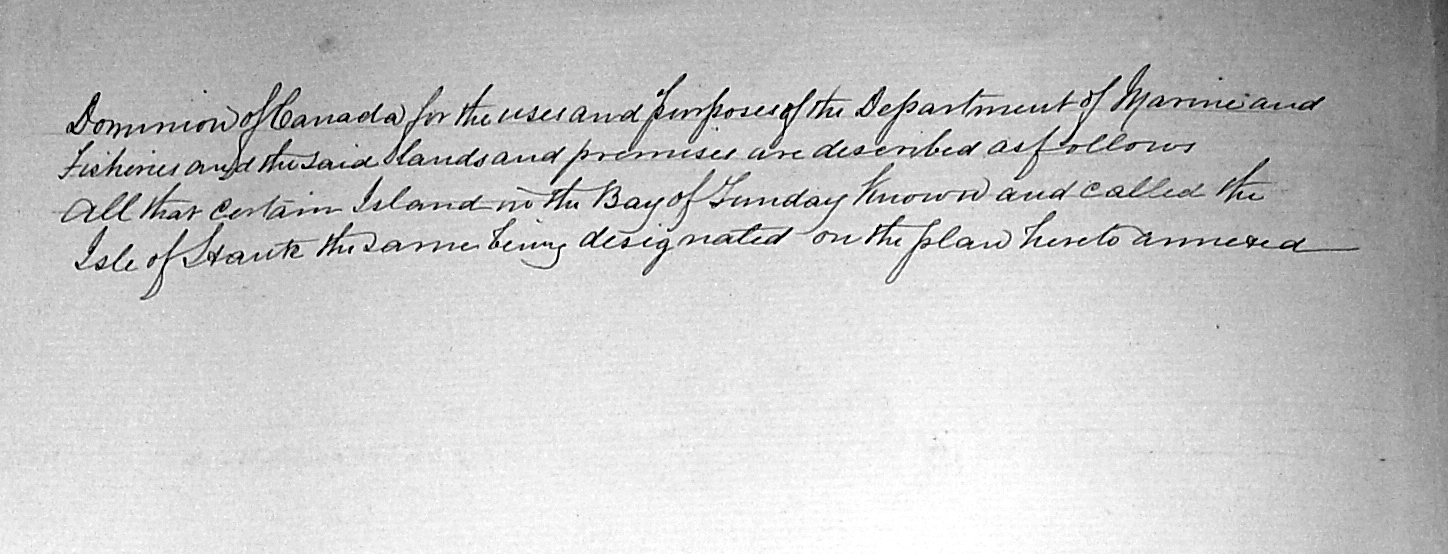 Dominion of Canada for the uses and purposes of the Department of Marine and
Fisheries and the said lands and premises are described as follows
All that certain Island in the Bay of Funday known and called the
Isle of Haute the same being designated on the plan hereto annexed